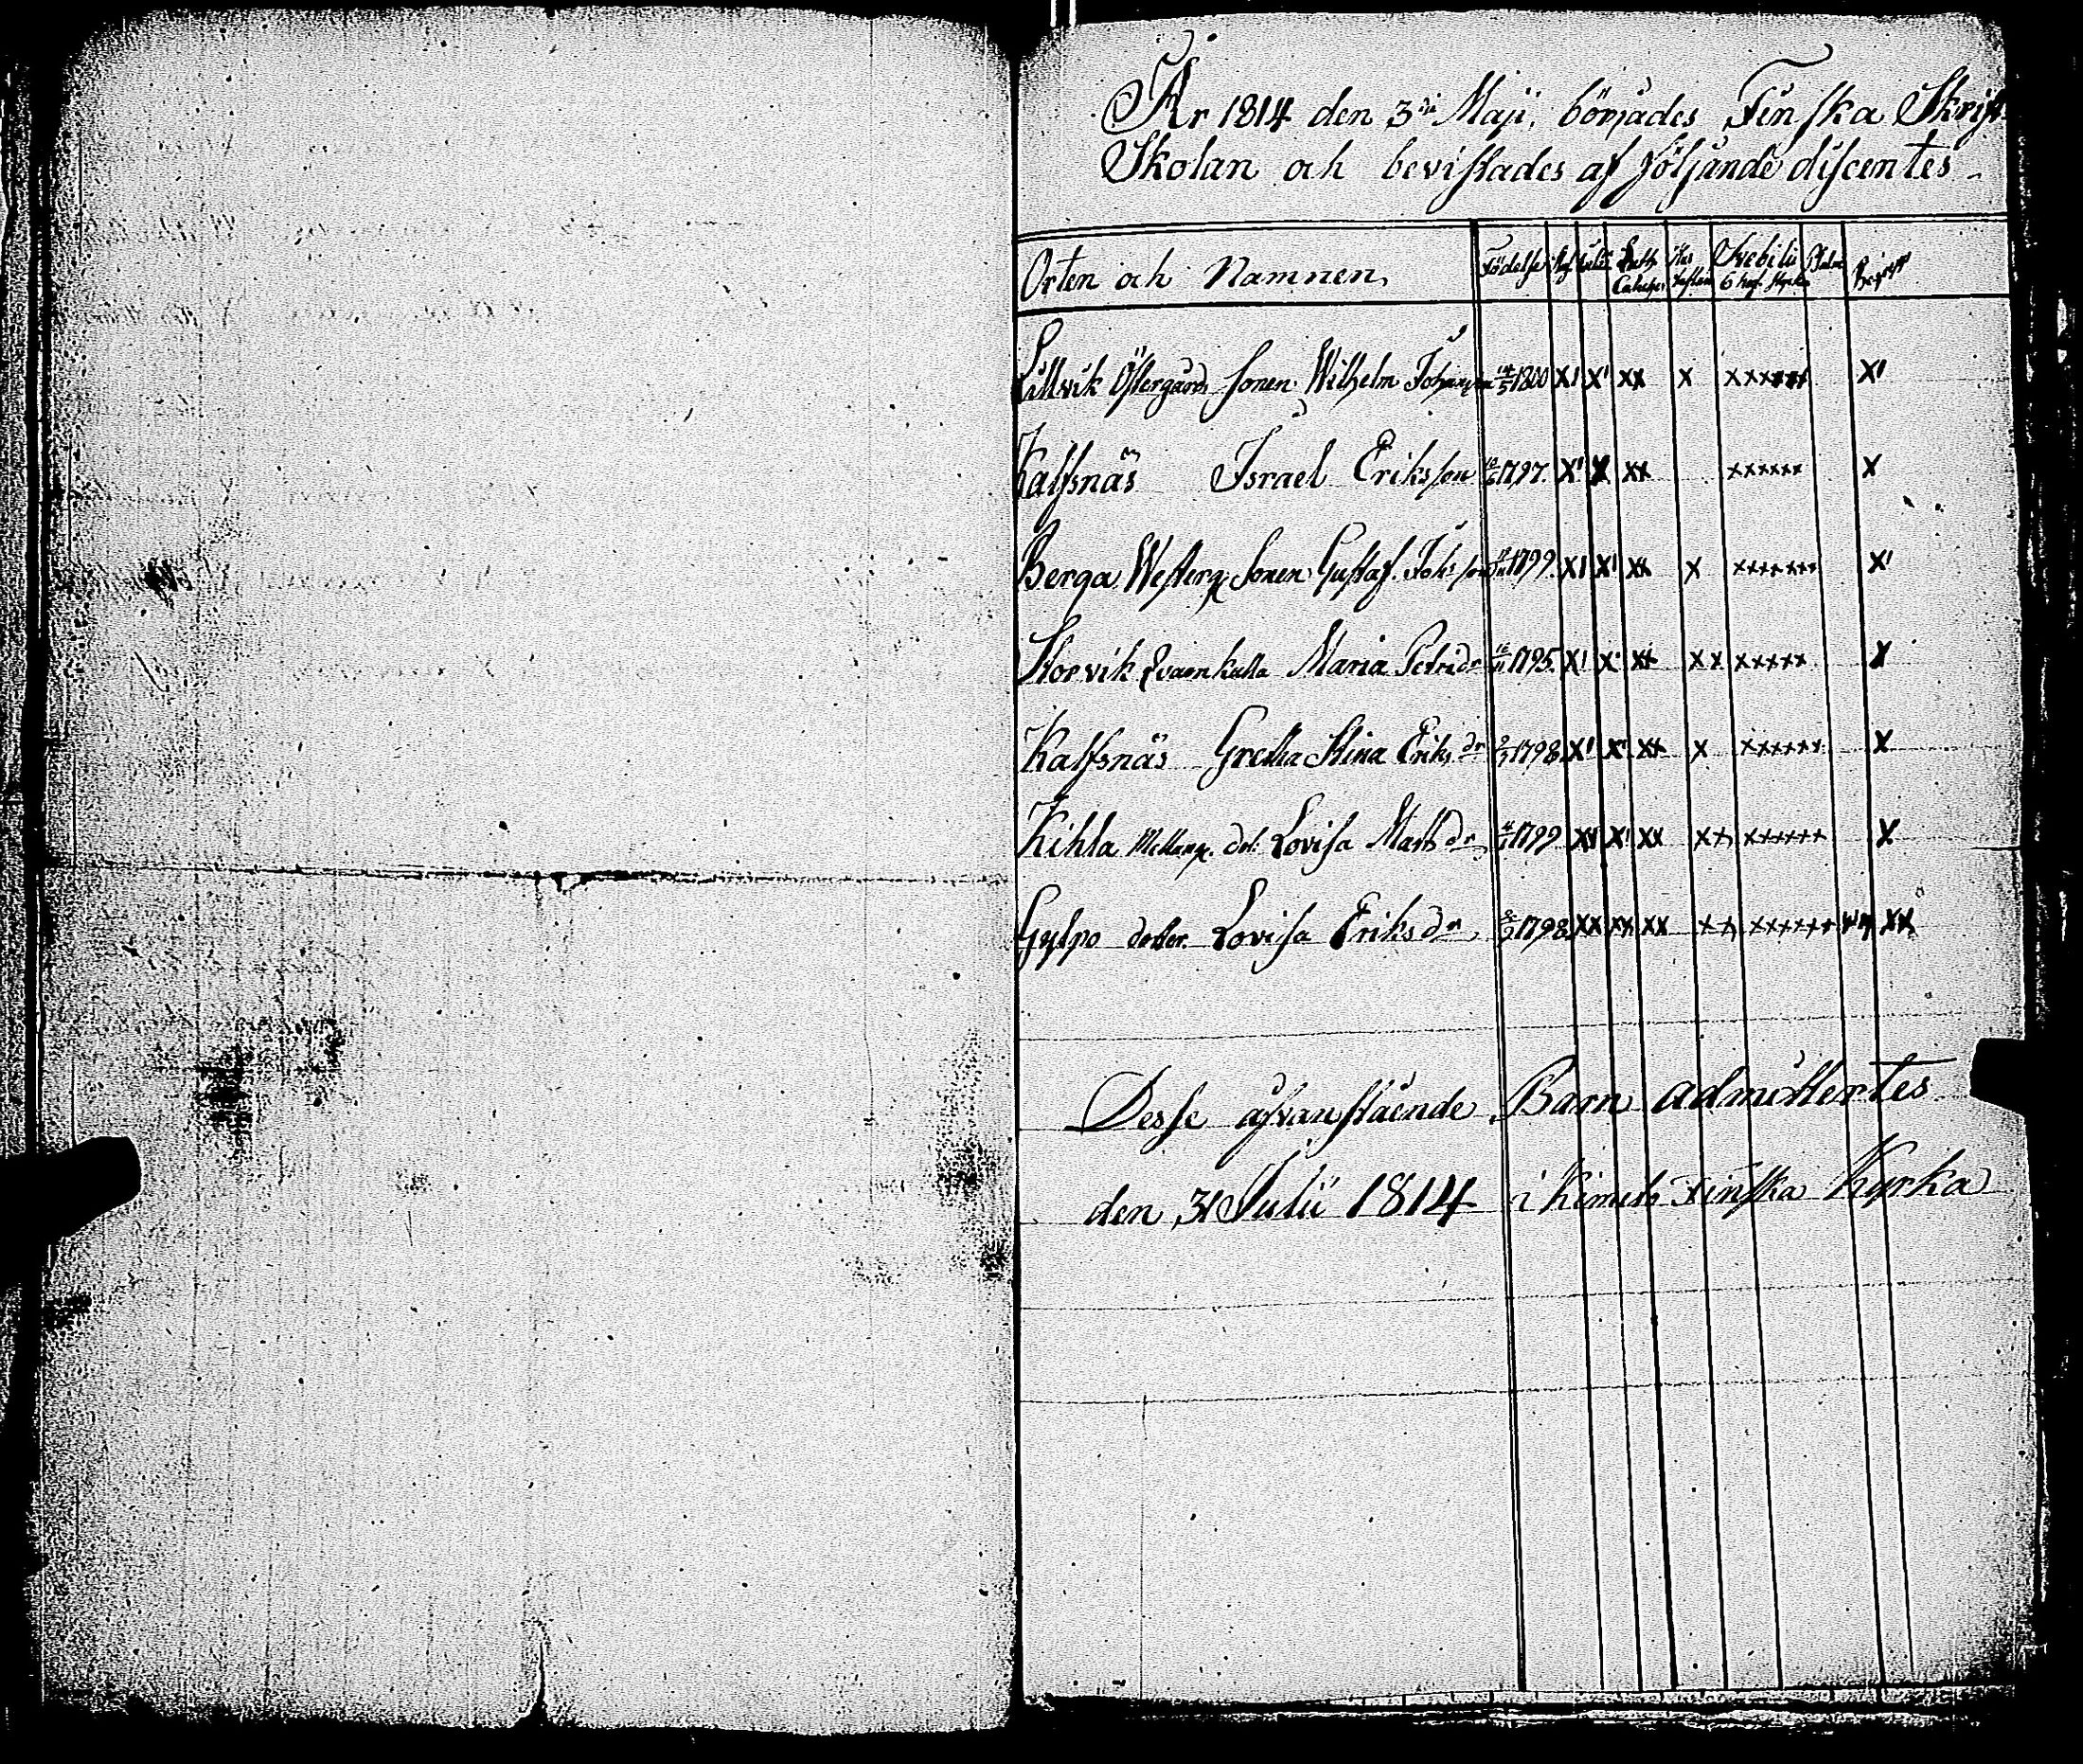 År 1814 den 3die Maji, börjades Finska Skrift
Skolan och bevistades af följande discentes
Orten och Namnen, Födelse Luth. Catech. Hus Taflan Svebilii 6 huf. styck. Begrep
Lillvik Östergårds Sonen Wilhelm Johansson 1800 x' x' xx x xxxxxxx x'
Kalfsnäs Israel Eriksson 1797. x' x xx xxxxxx x
Berga Westerg Sonen Gustaf Johsson 1799. x' x' xx x xxxxxxx x'
Storvik Qvarnkulla Maria Petri dr 1795. x' x' xx xx xxxxx x
Kalfsnäs Gretha Stina Eriks dr 1798 x' x' xx x xxxxxx x
Kihla Mellang. dot: Lovisa Matts dr 1799 xx x' xx xx xxxxxx x
Gylpo dotter Lovisa Eriks dr 1798 xx xx xx xx xxxxxx xx xx
Desse ofvanstående Barn admitterdes
den 31 Julii 1814 i Kimito Finska Kyrka